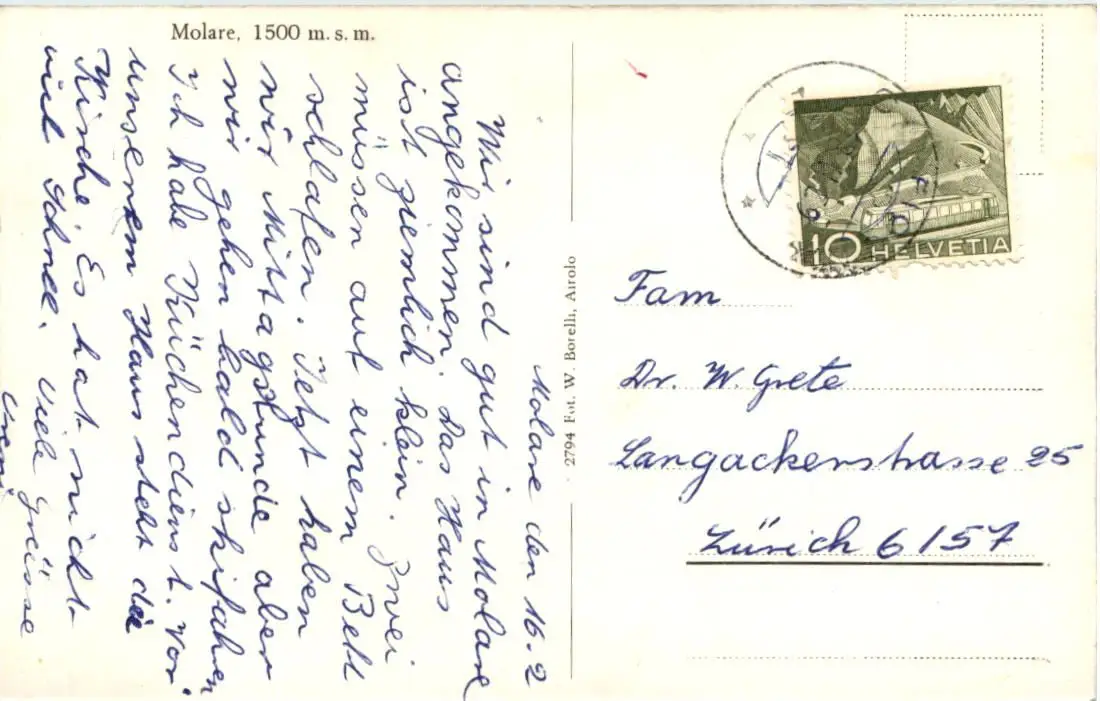 Molare, 1500 m. s. m.
Molare den 16.2
Wir sind gut in Molare
angekommen. Das Haus
ist ziemlich klein. Zwei
müssen auf einem Bett
schlafen. Jetzt haben
wir Mittagstunde aber
wir gehen bald skifahren
Ich habe Küchendienst. Vor
unserem Haus steht die
Kirche. Es hat nicht
viel Schnee. Viele Grüsse
2794 Fot. W. Borelli, Airolo
10 HELVETIA
Fam
Dr. W. Grete
Langackerstrasse 25
Zürich 6/57